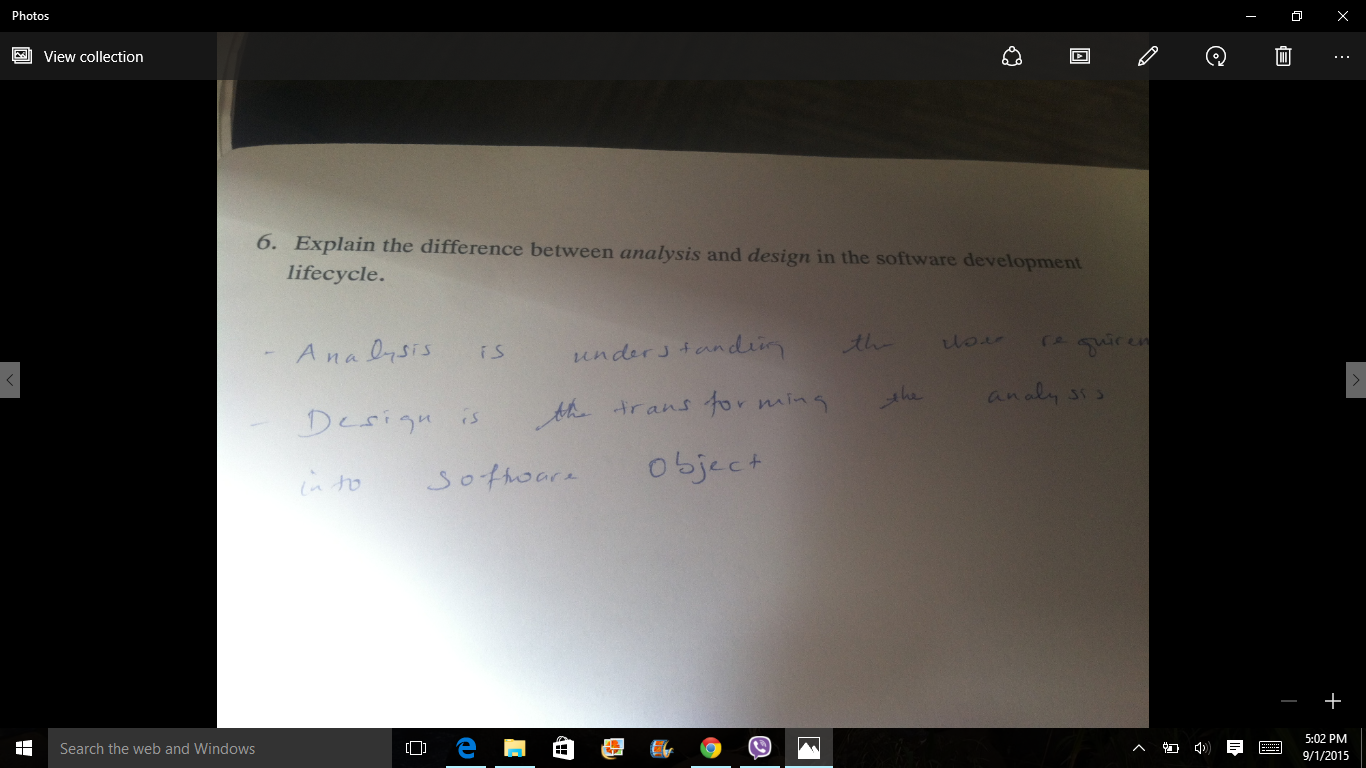 Photos
View collection
6. Explain the difference between analysis and design in the software development
lifecycle.
- Analysis is understanding the user requirem
- Design is the transforming the analysis
into software object
Search the web and Windows
5:02 PM
9/1/2015